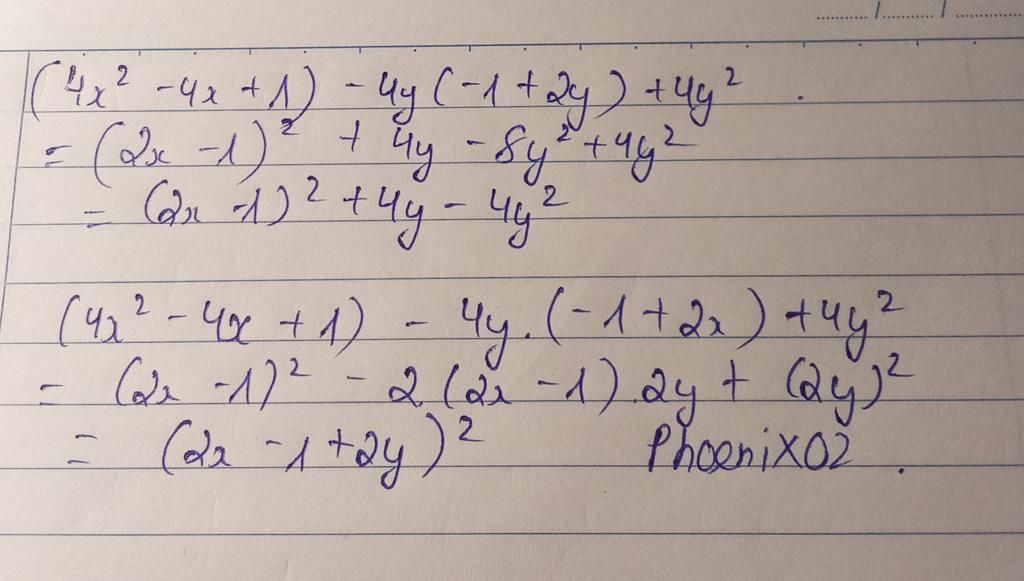 (4x² - 4x + 1) - 4y (-1 + 2y) + 4y²
= (2x - 1)² + 4y - 8y² + 4y²
= (2x - 1)² + 4y - 4y²
(4x² - 4x + 1) - 4y.(-1 + 2x) + 4y²
= (2x - 1)² - 2.(2x - 1).2y + (2y)²
= (2x - 1 + 2y)² PhoeniX02.